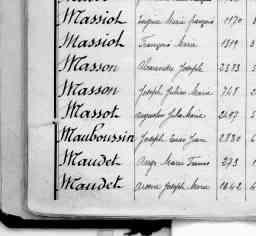 Massiot Eugène Marie François 1170
Massiot François Marie 1319 3
Masson Alexandre Joseph 2333 5
Masson Joseph Julien Marie 748 2
Massot Jules Marie 2497 5
Mauboussin Joseph Jean 2880 6
Maudet Ange Marie 273 1
Maudet Joseph Marie 1842 4